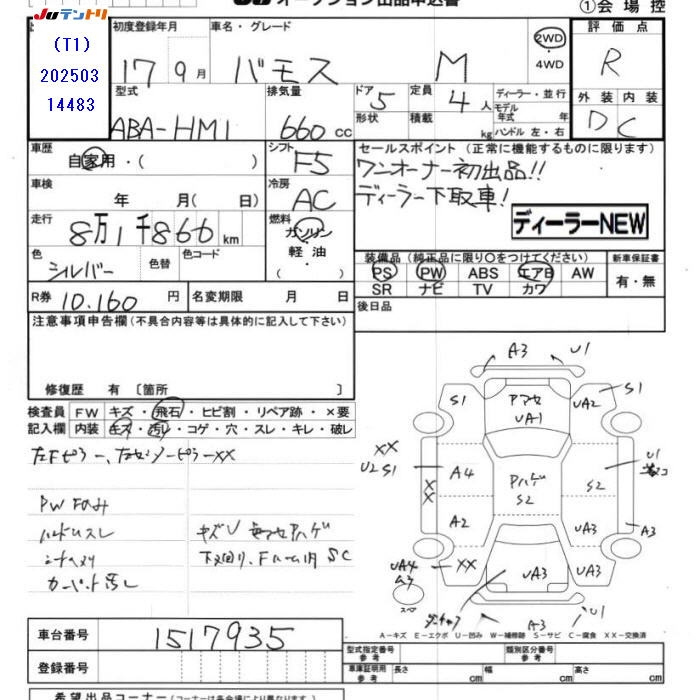 JUテントリ オークション出品申込書 ①会場控
(T1)
202503
14483
初度登録年月 車名・グレード 評価点
17 9月 バモス M 2WD ・4WD R
型式 排気量 ドア 定員 ディーラー・並行 外装 内装
ABA-HM1 660cc 5 4人 モデル年式 年 D C
形状 積載 kg ハンドル 左・右
車歴 シフト セールスポイント (正常に機能するものに限ります)
自家用・( ) F5 ワンオーナー初出品!!
車検 冷房 ディーラー下取車!
年 月( 日) AC
走行 燃料 ディーラーNEW
8万1千866km ガソリン
色 色替 色コード 軽・油 装備品(純正品に限り〇をつけてください) 新車保証書
シルバー ( ) PS PW ABS エアB AW 有・無
SR ナビ TV カワ
R券 10.160円 名変期限 月 日 後日品
注意事項申告欄(不具合内容等は具体的に記入して下さい)
修復歴 有〔箇所 〕
検査員 FW キズ・飛石・ヒビ割・リペア跡・×要
記入欄 内装 キズ・汚れ・コゲ・穴・スレ・キレ・破レ
左Fピラー、左センターピラーXX
PW Fのみ
ハンドルスレ キズU
シートヘタリ 下廻り、Fルーム内 SC
カーペット汚し
A3 U1
S1 アマセ UA1 UA2 S1
XX
U2 S1 A4 アハゲ S2 S2 U1
XX A2 UA3 A3
UA4 XX UA3 UA3
A3
スペア U1
A3
A-キズ E-エクボ U-凹み W-補修跡 S-サビ C-腐食 XX-交換済
車台番号 1517935 型式指定番号 参考 類別区分番号 参考
登録番号 車体証明用 参考 長さ cm 幅 cm 高さ cm
希望出品コーナー(コーナーは各会場により異なります)